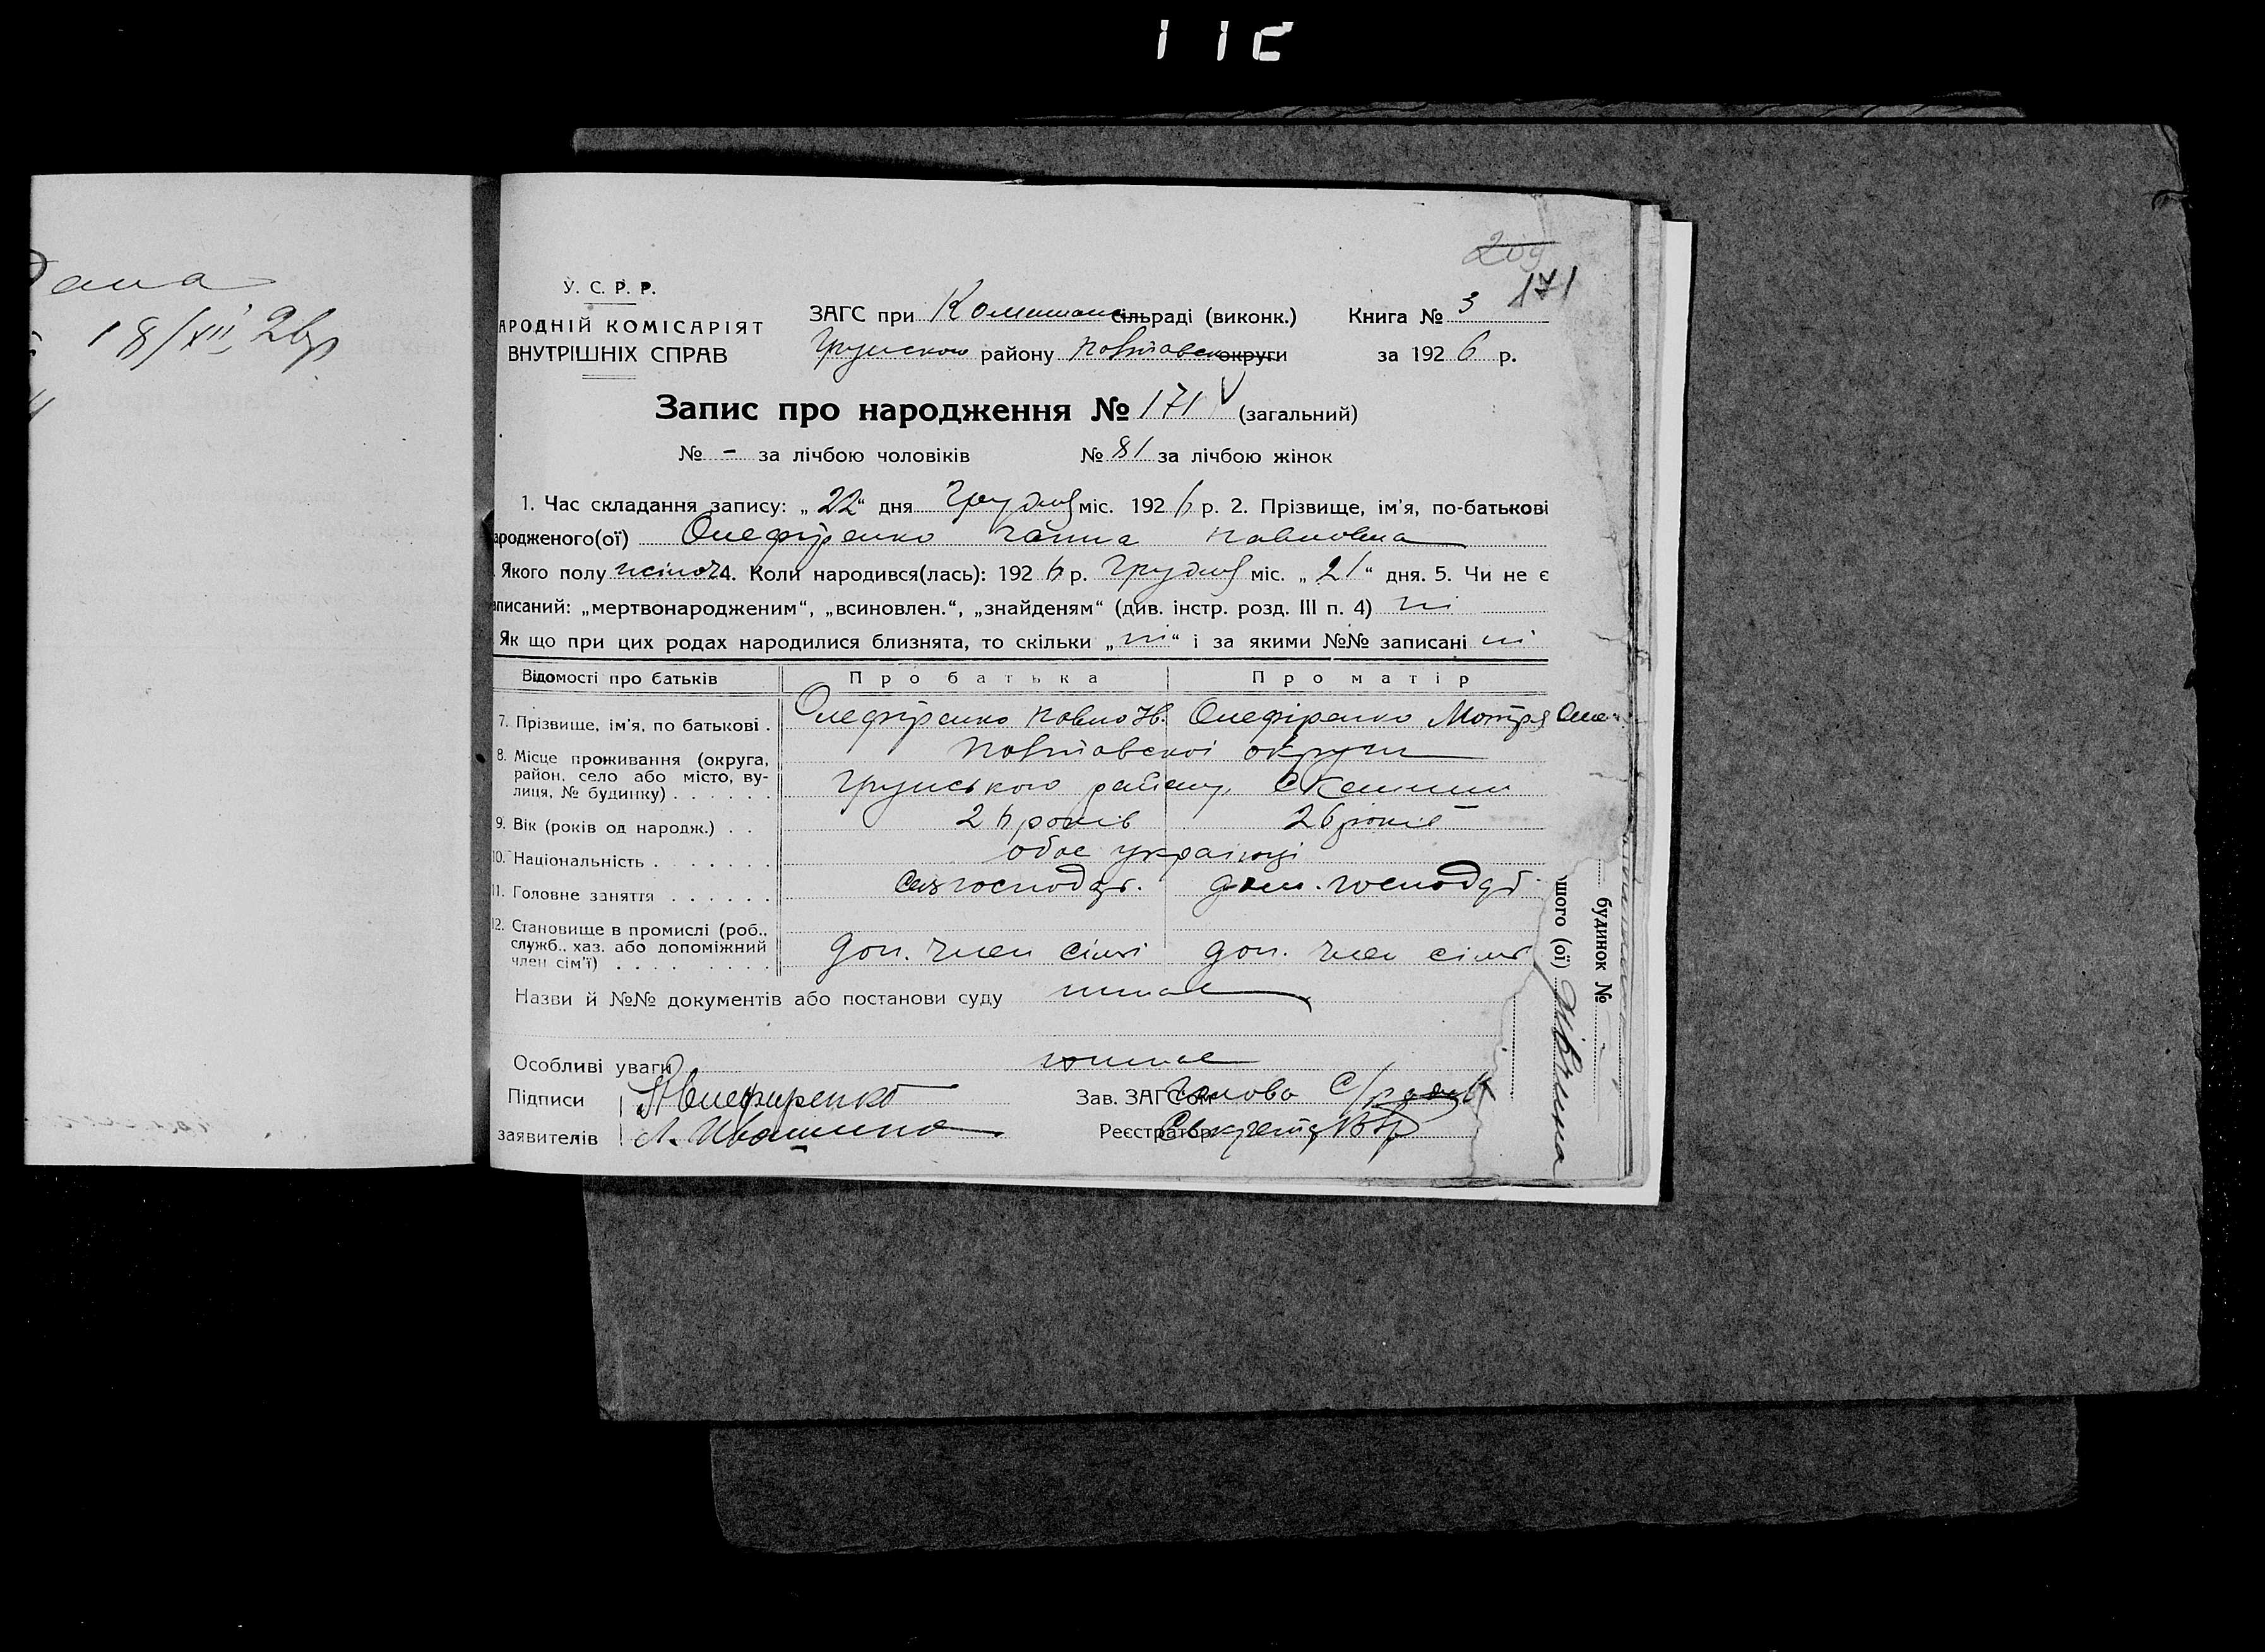 дана
18/XII 26р
У. С. Р. Р.
АРОДНІЙ КОМІСАРІЯТ
ВНУТРІШНІХ СПРАВ
ЗАГС при сільраді (виконк.) Книга № 3
171
Грунського району Полтавськ округи за 1926 р.
Запис про народження № 171 (загальний)
№ - за лічбою чоловіків № 81 за лічбою жінок
1. Час складання запису: „22“ дня Грудня міс. 1926 р. 2. Прізвище, ім'я, по-батькові
ародженого(ої) Олефіренко Ганна Павловна
Якого полу жіноч 4. Коли народився(лась): 1926 р. Грудня міс. „21“ дня. 5. Чи не є
аписаний: „мертвонародженим“, „всиновлен.“, „знайденям“ (див. інстр. розд. III п. 4) ні
Як що при цих родах народилися близнята, то скільки „ні“ і за якими №№ записані ні
Відомості про батьків Про батька Про матір
7. Прізвище, ім'я, по батькові . Олефіренко Павло Ів. Олефіренко Мотря Оле
8. Місце проживання (округа, район, село або місто, вулиця, № будинку) . . . . . . Полтавської округи
Грунського району,
9. Вік (років од народж.) . . 26 років 26 років
10. Національність . . . . . . . обоє українці
11. Головне заняття . . . . . . господар. дом. господар
12. Становище в промислі (роб., служб., хаз. або допоміжний член сім'ї) . . . . . . . . доп. член сімї доп. член сімї
Назви й №№ документів або постанови суду немає
Особливі уваги немає
Підписи Олефиренко Зав. ЗАГСом Голова С/ради
заявителів Л. Ивашина Реєстратор Секретар
будинок №
шого (ої)